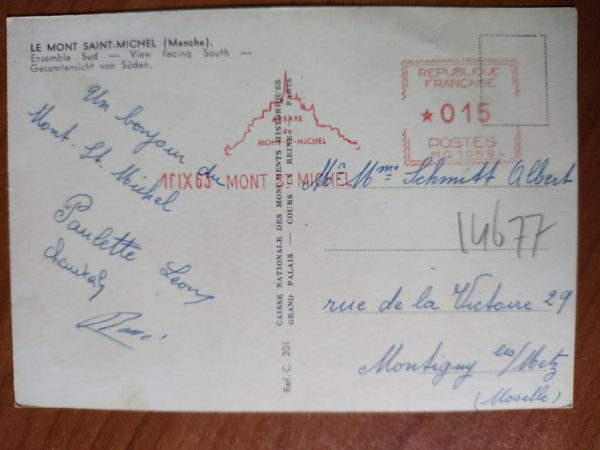 LE MONT SAINT-MICHEL (Manche).
Ensemble Sud — View facing South —
Gesamtansicht von Süden.
Un bonjour du
Mont. St. Michel
Paulette Léon
ABBAYE
de
MONT-ST-MICHEL
IX63 MONT ST MICHEL
Ref. C 201
CAISSE NATIONALE DES MONUMENTS HISTORIQUES
GRAND PALAIS — COURS LA REINE — PARIS
REPUBLIQUE
FRANÇAISE
★015
POSTES
Mr Mme Schmitt Albert
14677
rue de la Victoire 29
Montigny les/Metz
(Moselle)